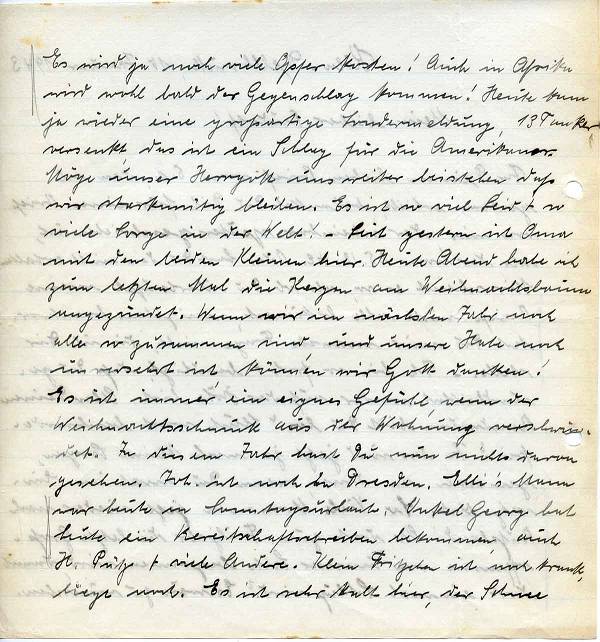 Es wird ja noch viele Opfer kosten! Auch in Afrika
wird wohl bald der Gegenschlag kommen! Heute kam
ja wieder eine großartige Sondermeldung, 13 Tanker
versenkt, das ist ein Schlag für die Amerikaner.
Möge unser Herrgott uns weiter beistehen daß
wir starkmütig bleiben. Es ist so viel Leid + so
viele Sorge in der Welt! – Seit gestern ist Oma
mit den beiden Kleinen hier. Heute Abend habe ich
zum letzten Mal die Kerzen am Weihnachtsbaum
angezündet. Wenn wir im nächsten Jahr noch
alle so zusammen sind und unsere Habe noch
unversehrt ist können wir Gott danken!
Es ist immer ein eignes Gefühl, wenn der
Weihnachtsschmuck aus der Wohnung verschwin-
det. In diesem Jahr hast Du nun nichts davon
gesehen. Joh. ist noch in Dresden. Elli's Mann
war heute in Sonntagsurlaub. Onkel Georg hat
heute ein Bereitschaftschreiben bekommen, auch
H. Pütz + viele Andere. Klein Fritzchen ist noch krank,
liegt noch. Es ist sehr kalt hier, der Schnee